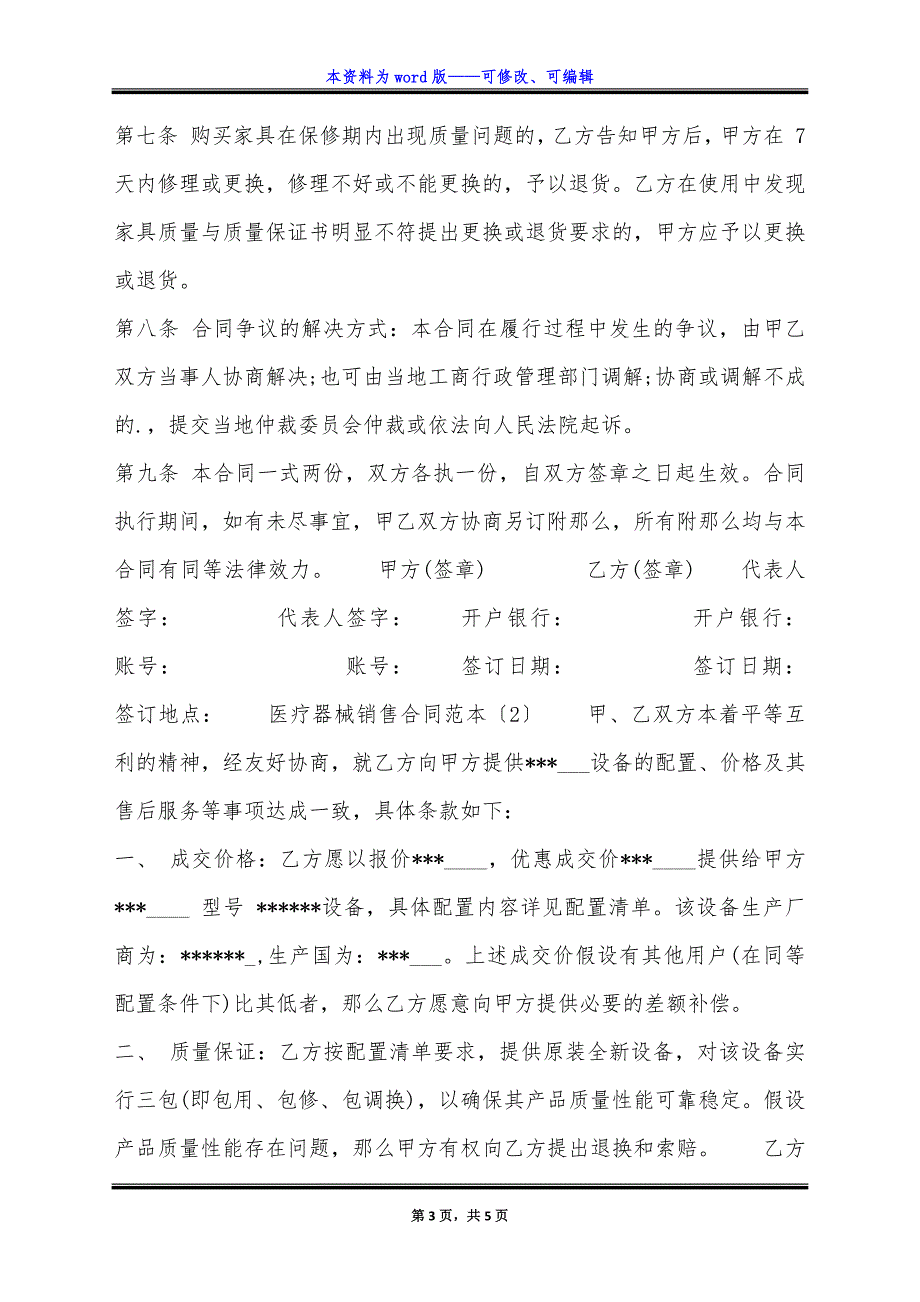 本资料为 word 版——可修改、可编辑
第七条 购买家具在保修期内出现质量问题的,乙方告知甲方后,甲方在 7
天内修理或更换，修理不好或不能更换的，予以退货。乙方在使用中发现
家具质量与质量保证书明显不符提出更换或退货要求的，甲方应予以更换
或退货。
第八条 合同争议的解决方式：本合同在履行过程中发生的争议，由甲乙
双方当事人协商解决;也可由当地工商行政管理部门调解;协商或调解不成
的.，提交当地仲裁委员会仲裁或依法向人民法院起诉。
第九条 本合同一式两份，双方各执一份，自双方签章之日起生效。合同
执行期间，如有未尽事宜，甲乙双方协商另订附那么，所有附那么均与本
合同有同等法律效力。 甲方(签章) 乙方(签章) 代表人
签字： 代表人签字： 开户银行： 开户银行：
账号： 账号： 签订日期： 签订日期：
签订地点： 医疗器械销售合同范本〔2〕 甲、乙双方本着平等互
利的精神，经友好协商，就乙方向甲方提供***___设备的配置、价格及其
售后服务等事项达成一致，具体条款如下：
一、 成交价格：乙方愿以报价***____，优惠成交价***____提供给甲方
***____ 型号 ******设备，具体配置内容详见配置清单。该设备生产厂
商为：******_,生产国为：***___。上述成交价假设有其他用户(在同等
配置条件下)比其低者，那么乙方愿意向甲方提供必要的差额补偿。
二、 质量保证：乙方按配置清单要求，提供原装全新设备，对该设备实
行三包(即包用、包修、包调换)，以确保其产品质量性能可靠稳定。假设
产品质量性能存在问题，那么甲方有权向乙方提出退换和索赔。 乙方
第 3 页，共 5 页